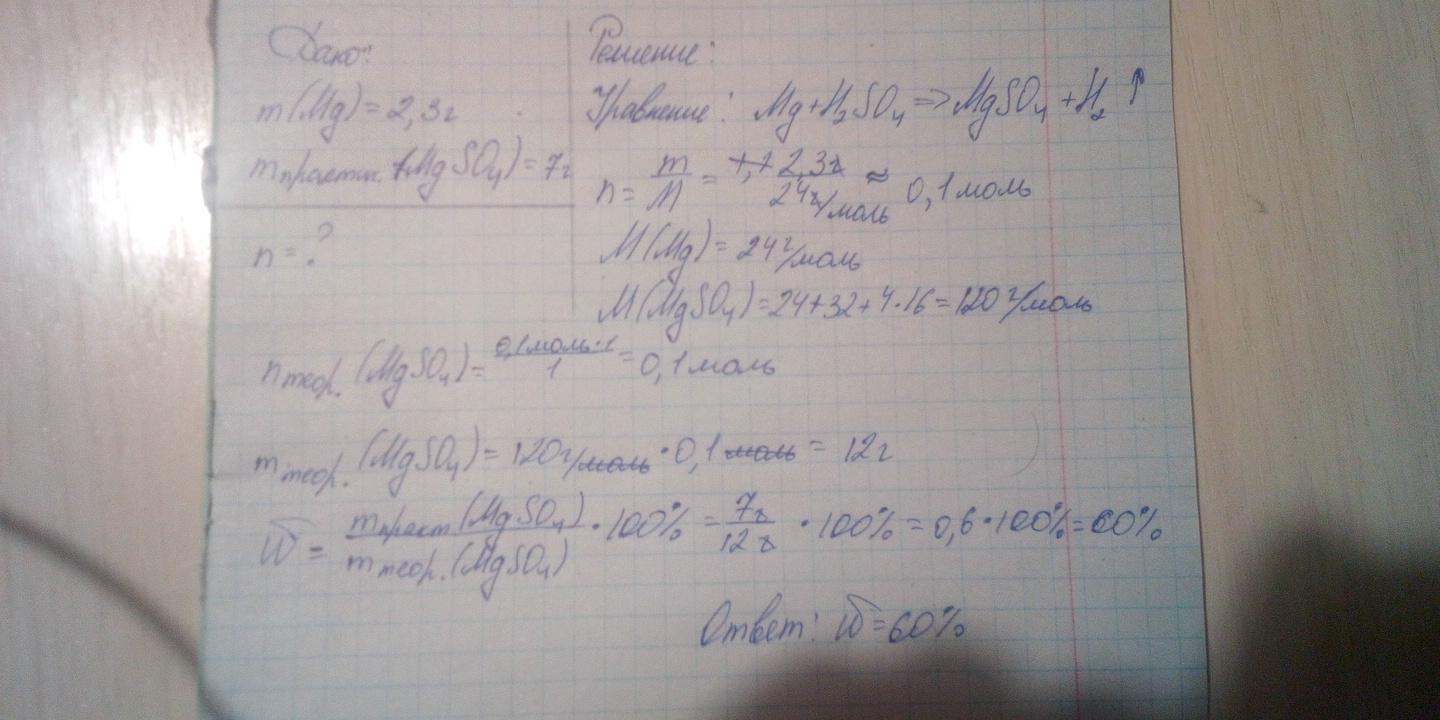 Дано:
m(Mg)=2,3г
mпрактич.(MgSO₄)=7г
n=?
Решение:
Уравнение: Mg+H₂SO₄=>MgSO₄+H₂↑
n=m/M=2,3г/24г/моль≈0,1моль
M(Mg)=24г/моль
M(MgSO₄)=24+32+4·16=120г/моль
nтеор.(MgSO₄)=0,1моль·1/1=0,1моль
mтеор.(MgSO₄)=120г/моль·0,1моль=12г
W=mпракт(MgSO₄)/mтеор.(MgSO₄)·100%=7г/12г·100%=0,6·100%=60%
Ответ: W=60%